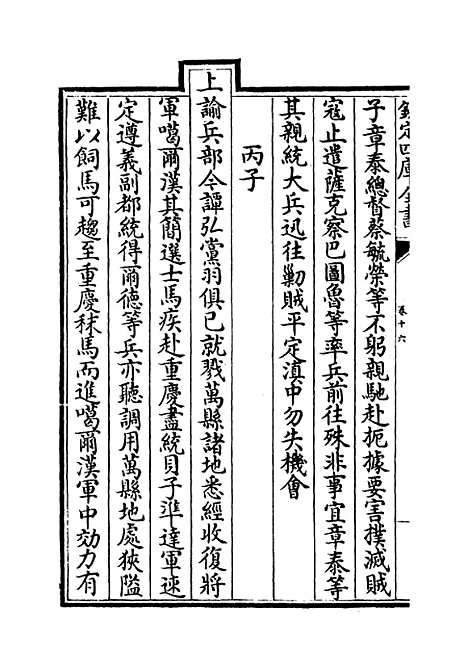 欽定四庫全書
卷十六
子章泰總督蔡毓榮等不躬親馳赴扼據要害撲滅賊
寇止遣薩克察巴圖魯等率兵前往殊非事宜章泰等
其親統大兵迅往勦賊平定滇中勿失機會
丙子
上諭兵部今譚弘黨羽俱已就戮萬縣諸地悉經收復將
軍噶爾漢其簡選士馬疾赴重慶盡統貝子準達軍速
定遵義副都統得爾德等兵亦聽調用萬縣地處狹隘
難以飼馬可趨至重慶秣馬而進噶爾漢軍中効力有